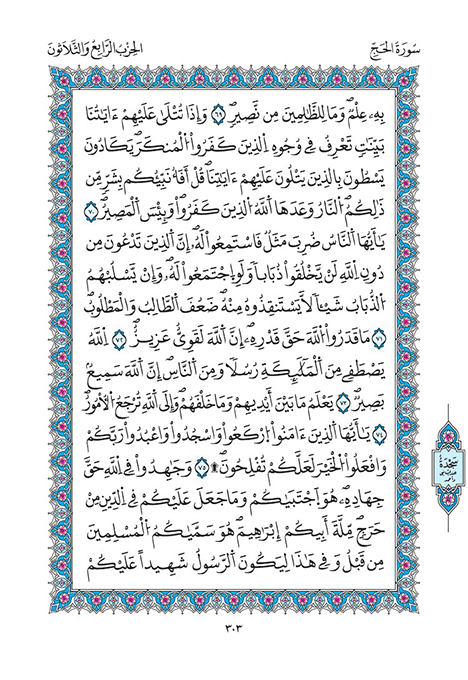 سُورَةُ الحَجِّ
الحِزْبُ الرَّابِعُ وَالثَّلَاثُونَ
بِهِۦ عِلْمٞ وَمَا لِلظَّٰلِمِينَ مِن نَّصِيرٖ ٦٩ وَإِذَا تُتْلَىٰ عَلَيْهِمُۥٓ ءَايَٰتُنَا
بَيِّنَٰتٖ تَعْرِفُ فِے وُجُوهِ اِ۬لذِينَ كَفَرُواْ اُ۬لْمُنكَرَۖ يَكَادُونَ
يَسْطُونَ بِالذِينَ يَتْلُونَ عَلَيْهِمُۥٓ ءَايَٰتِنَاۖ قُلَ اَفَأُنَبِّئُكُم بِشَرّٖ مِّن
ذَٰلِكُمُۖ اُ۬لنَّارُ وَعَدَهَا اَ۬للَّهُ اُ۬لذِينَ كَفَرُواْ وَبِيسَ اَ۬لْمَصِيرُۖ ٧٠
يَٰٓأَيُّهَا اَ۬لنَّاسُ ضُرِبَ مَثَلٞ فَاسْتَمِعُواْ لَهُۥٓۖ إِنَّ اَ۬لذِينَ تَدْعُونَ مِن
دُونِ اِ۬للَّهِ لَنْ يَّخْلُقُواْ ذُبَاباٗ وَلَوِ اِ۪جْتَمَعُواْ لَهُۥۖ وَإِنْ يَّسْلُبْهُمُ
اُ۬لذُّبَابُ شَيْـٔاٗ لَّا يَسْتَنقِذُوهُ مِنْهُۖ ضَعُفَ اَ۬لطَّالِبُ وَالْمَطْلُوبُۖ
٧١ مَا قَدَرُواْ اُ۬للَّهَ حَقَّ قَدْرِهِۦٓۖ إِنَّ اَ۬للَّهَ لَقَوِيٌّ عَزِيزٌۖ ٧٢ اِ۬للَّهُ
يَصْطَفِے مِنَ اَ۬لْمَلَٰٓئِكَةِ رُسُلاٗ وَمِنَ اَ۬لنَّاسِۖ إِنَّ اَ۬للَّهَ سَمِيعُۢ
بَصِيرٞۖ ٧٣ يَعْلَمُ مَا بَيْنَ أَيْدِيهِمْ وَمَا خَلْفَهُمْۖ وَإِلَى اَ۬للَّهِ تُرْجَعُ اُ۬لُامُورُۖ
٧٤ يَٰٓأَيُّهَا اَ۬لذِينَ ءَامَنُواْ اُ۪رْكَعُواْ وَاسْجُدُواْ وَاعْبُدُواْ رَبَّكُمْ
وَافْعَلُواْ اُ۬لْخَيْرَ لَعَلَّكُمْ تُفْلِحُونَۖ ۩ ٧٥ وَجَٰهِدُواْ فِے اِ۬للَّهِ حَقَّ
جِهَادِهِۦۖ هُوَ اَ۪جْتَبَيٰكُمْ وَمَا جَعَلَ عَلَيْكُمْ فِے اِ۬لدِّينِ مِنْ
حَرَجٖۖ مِّلَّةَ أَبِيكُمُۥٓ إِبْرَٰهِيمَۖ هُوَ سَمّ۪يٰكُمُ اُ۬لْمُسْلِمِينَ
مِن قَبْلُ وَفِے هَٰذَا لِيَكُونَ اَ۬لرَّسُولُ شَهِيداً عَلَيْكُمْ
سَجْدَة
٣٠٣